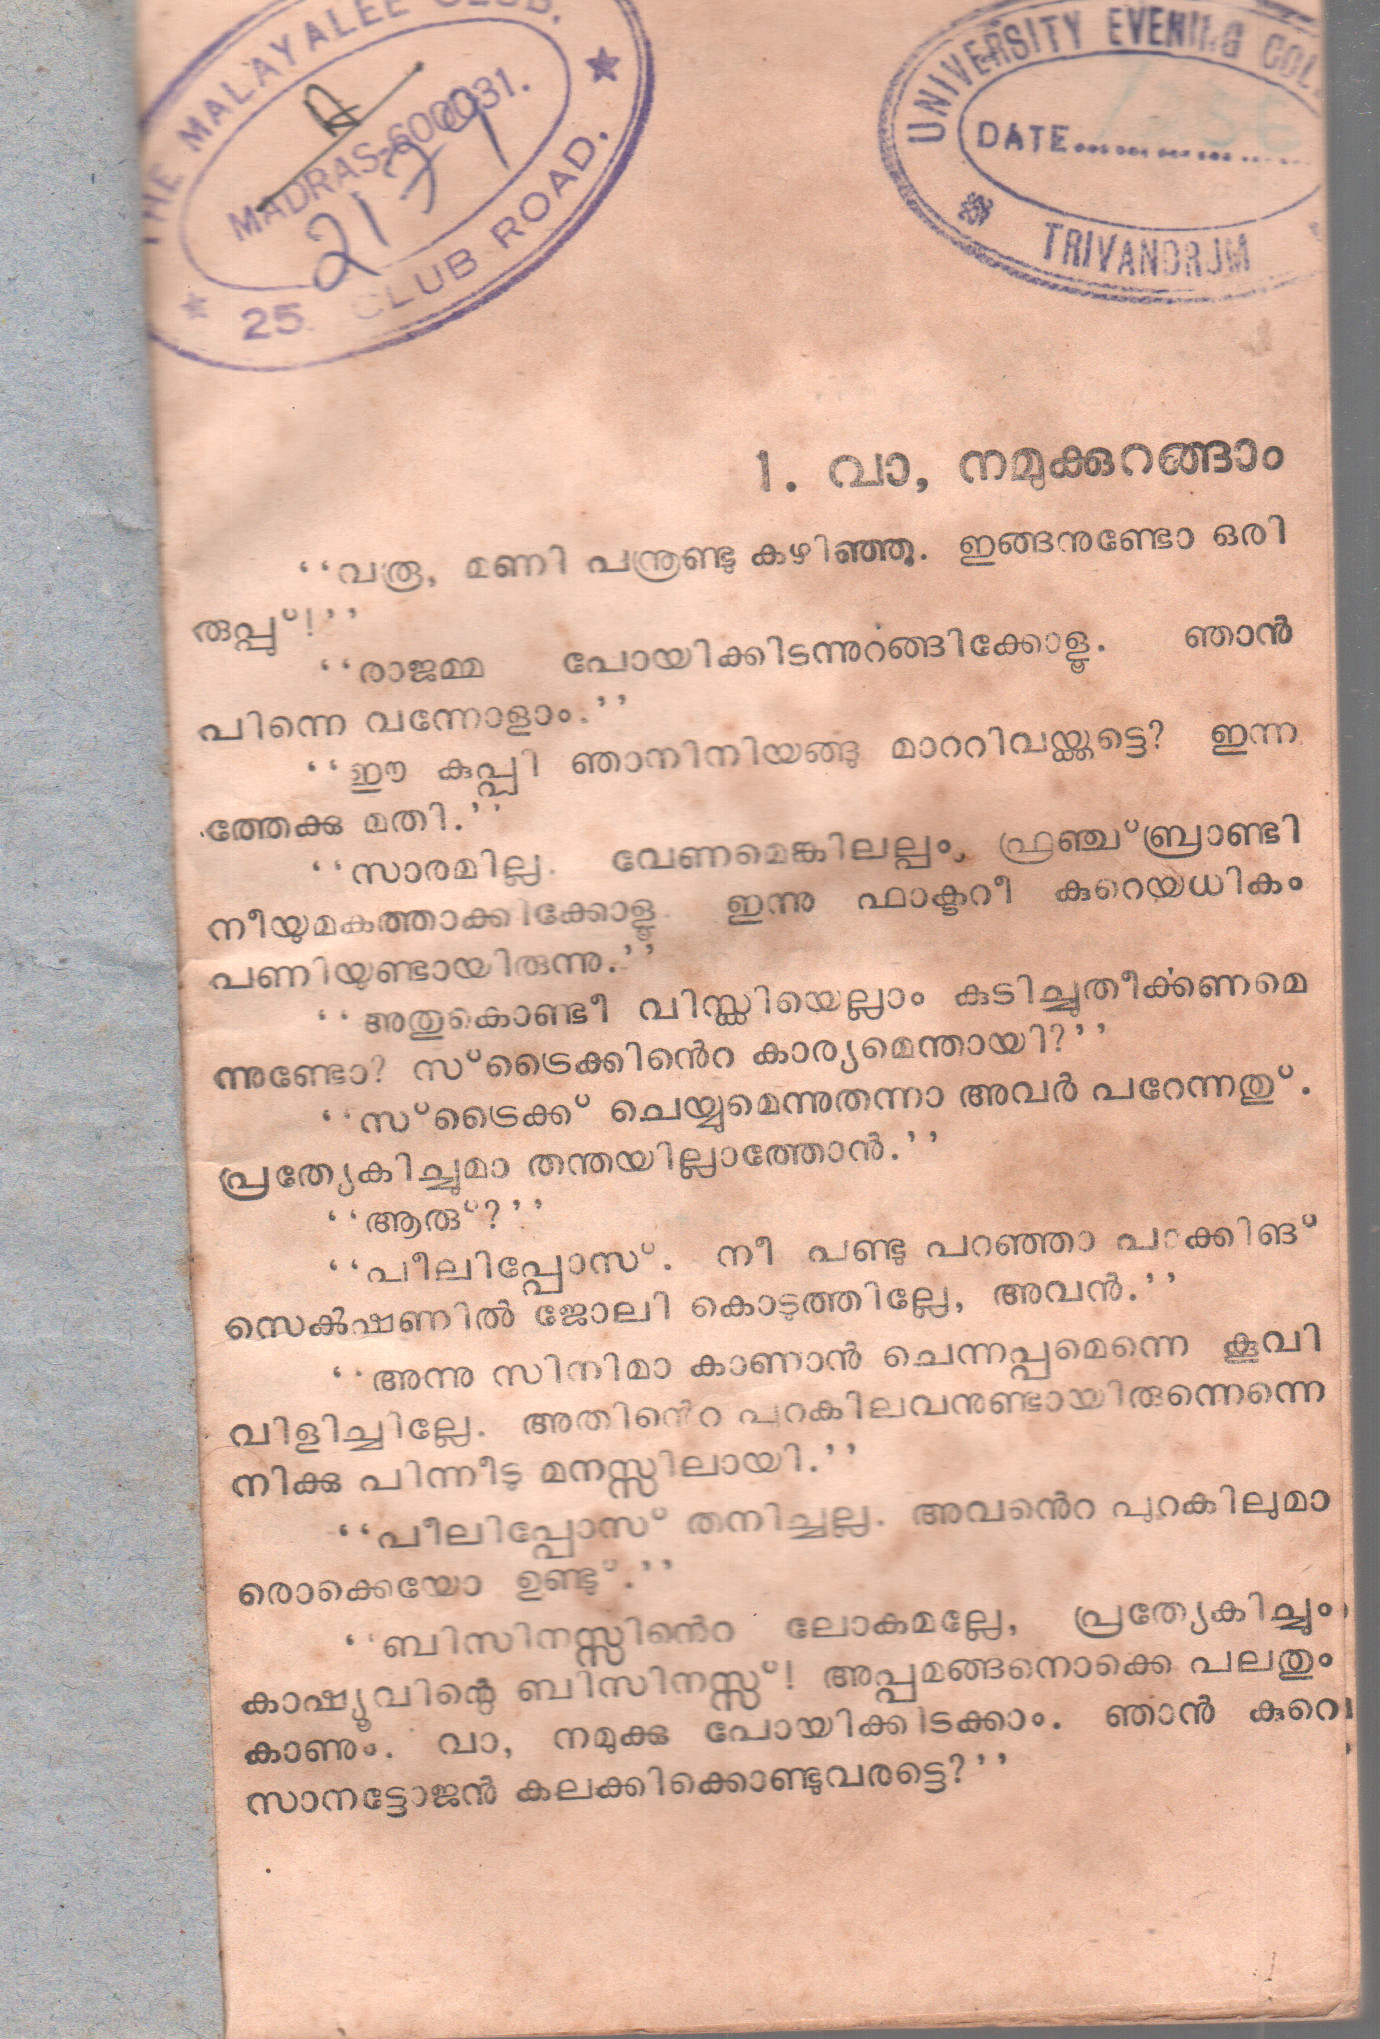 THE MALAYALEE CLUB.
MADRAS-600031.
2179
25. CLUB ROAD.
UNIVERSITY EVENING COL
DATE
TRIVANDRUM
1. വാ, നമുക്കുറങ്ങാം
‘‘വരൂ, മണി പന്ത്രണ്ടു കഴിഞ്ഞൂ. ഇങ്ങനുണ്ടോ ഒരി
രുപ്പു്!’’
‘‘രാജമ്മ പോയിക്കിടന്നുറങ്ങിക്കോളൂ. ഞാൻ
പിന്നെ വന്നോളാം.’’
‘‘ഈ കുപ്പി ഞാനിനിയങ്ങു മാററിവയ്ക്കട്ടെ? ഇന്ന
ത്തേക്കു മതി.’’
‘‘സാരമില്ല. വേണമെങ്കിലല്പം, ഫ്രഞ്ച്ബ്രാണ്ടി
നീയുമകത്താക്കിക്കോളൂ. ഇന്നു ഫാക്ടറീ കുറെയധികം
പണിയുണ്ടായിരുന്നു.’’
‘‘അതുകൊണ്ടീ വിസ്കിയെല്ലാം കുടിച്ചുതീർക്കണമെ
ന്നുണ്ടോ? സ്ട്രൈക്കിൻെറ കാര്യമെന്തായി?’’
‘‘സ്ട്രൈക്ക് ചെയ്യുമെന്നുതന്നാ അവർ പറേന്നതു്.
പ്രത്യേകിച്ചുമാ തന്തയില്ലാത്തോൻ.’’
‘‘ആരു്?’’
‘‘പീലിപ്പോസ്. നീ പണ്ടു പറഞ്ഞാ പാക്കിങ്
സെൿഷണിൽ ജോലി കൊടുത്തില്ലേ, അവൻ.’’
‘‘അന്നു സിനിമാ കാണാൻ ചെന്നപ്പമെന്നെ കൂവി
വിളിച്ചില്ലേ. അതിൻെറ പുറകിലവനുണ്ടായിരുന്നെന്നെ
നിക്കു പിന്നീടു മനസ്സിലായി.’’
‘‘പീലിപ്പോസ് തനിച്ചല്ല. അവൻെറ പുറകിലുമാ
രൊക്കെയോ ഉണ്ടു്.’’
‘‘ബിസിനസ്സിൻെറ ലോകമല്ലേ, പ്രത്യേകിച്ചും
കാഷ്യൂവിന്റെ ബിസിനസ്സ്! അപ്പമങ്ങനൊക്കെ പലതും
കാണും. വാ, നമുക്കു പോയിക്കിടക്കാം. ഞാൻ കുറെ
സാനട്ടോജൻ കലക്കിക്കൊണ്ടുവരട്ടെ?’’